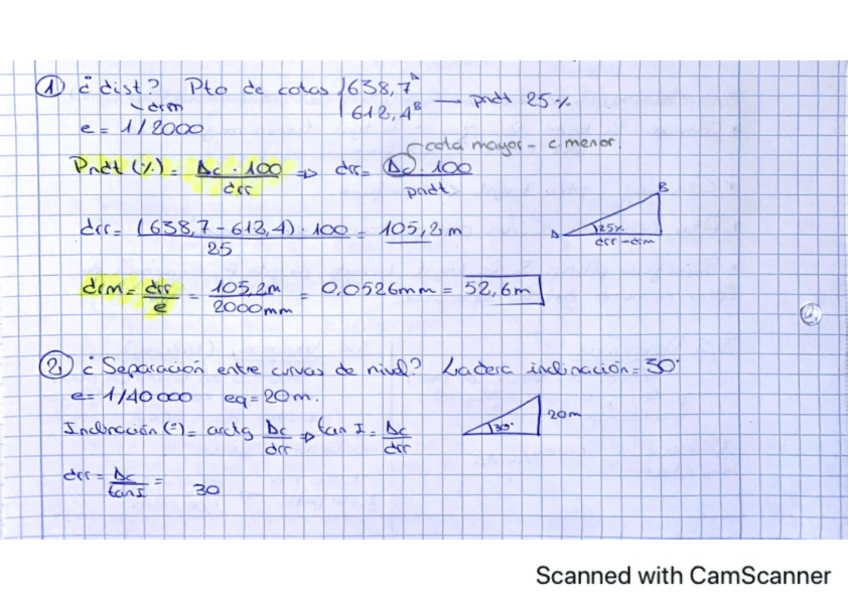 ① ¿dist? Pto de cotas 638,7ᴬ
drm 612,4ᴮ — pndt 25%
e = 1/2000
cota mayor - c. menor.
Pndt (%) = Δc · 100 / drr ⇒ drr = Δc · 100 / pndt
drr = (638,7 - 612,4) · 100 / 25 = 105,2 m
A 25% B
drr - drm
drm = drr / e = 105,2m / 2000mm = 0,0526mm = 52,6m
② ¿Separación entre curvas de nivel? Ladera inclinación = 30°
e = 1/40000 eq = 20m.
30° 20m
Inclinación (°) = arctg Δc / drr ⇒ tan I = Δc / drr
drr = Δc / tan I = 30
Scanned with CamScanner